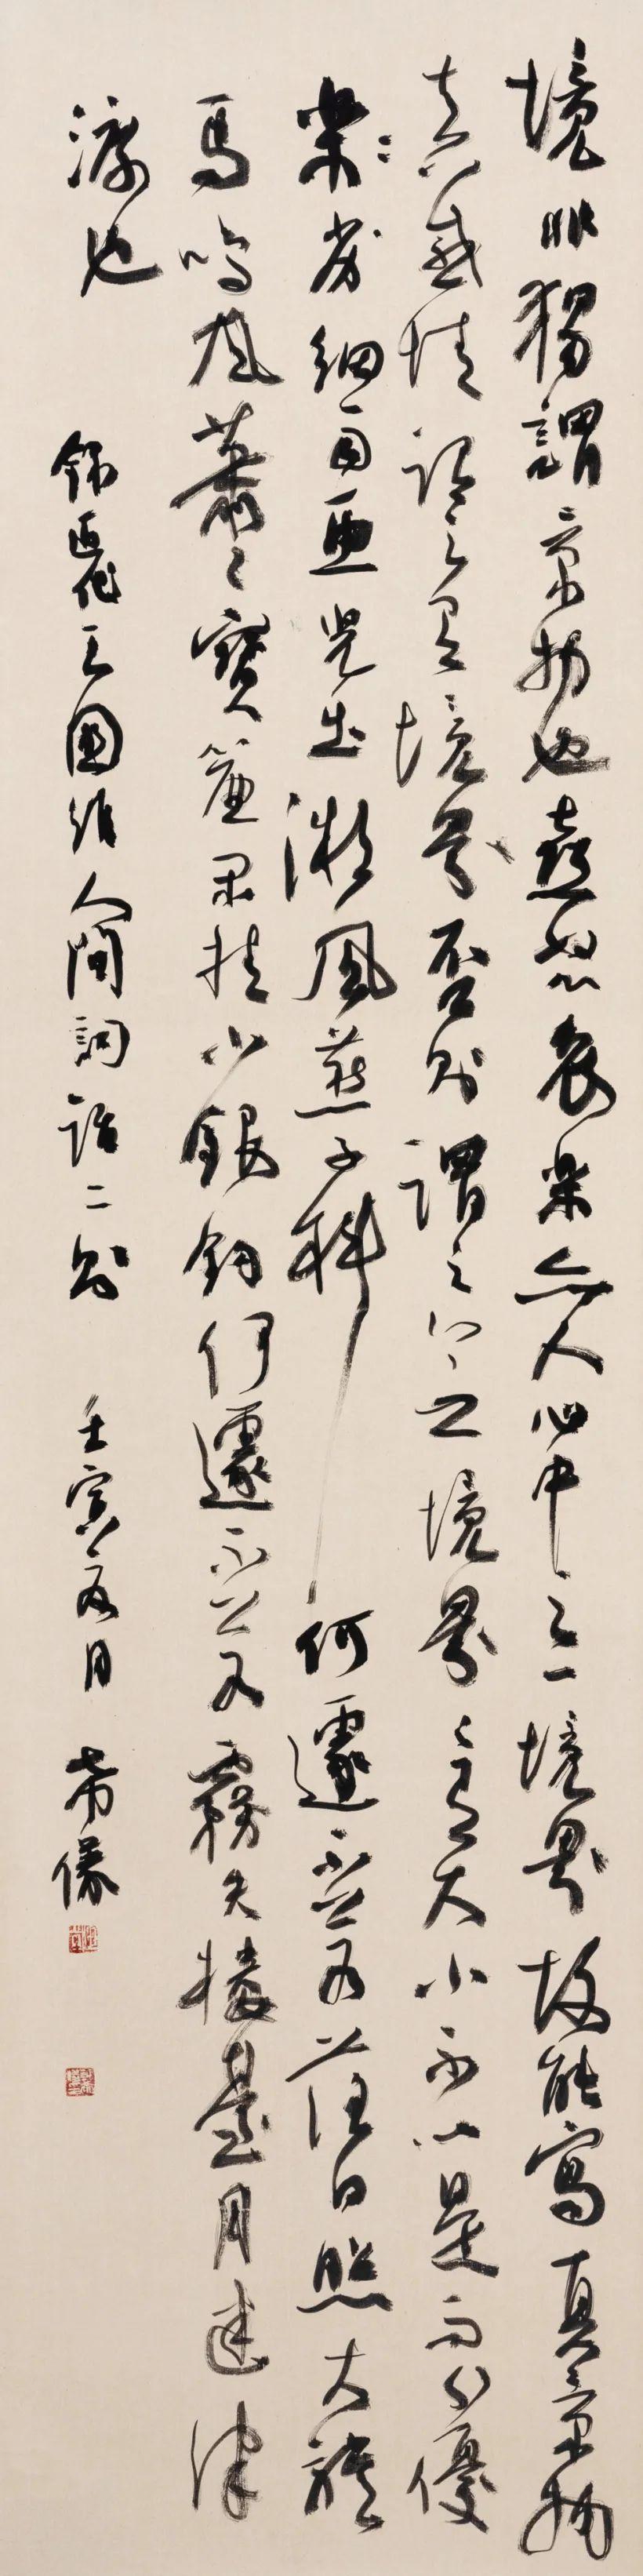 境非獨謂景物也喜怒哀樂亦人心中之一境界故能寫真景物
真感情謂之有境界否則謂之無境界〻有大小不以是而分優
樂劣細雨魚兒出微風燕子斜何遽不若落日照大旗
馬鳴風蕭〻寶簾閑挂小銀鉤何遽不若霧失樓臺月迷津
渡也
錄近代王國維人間詞話二則 壬寅月 希